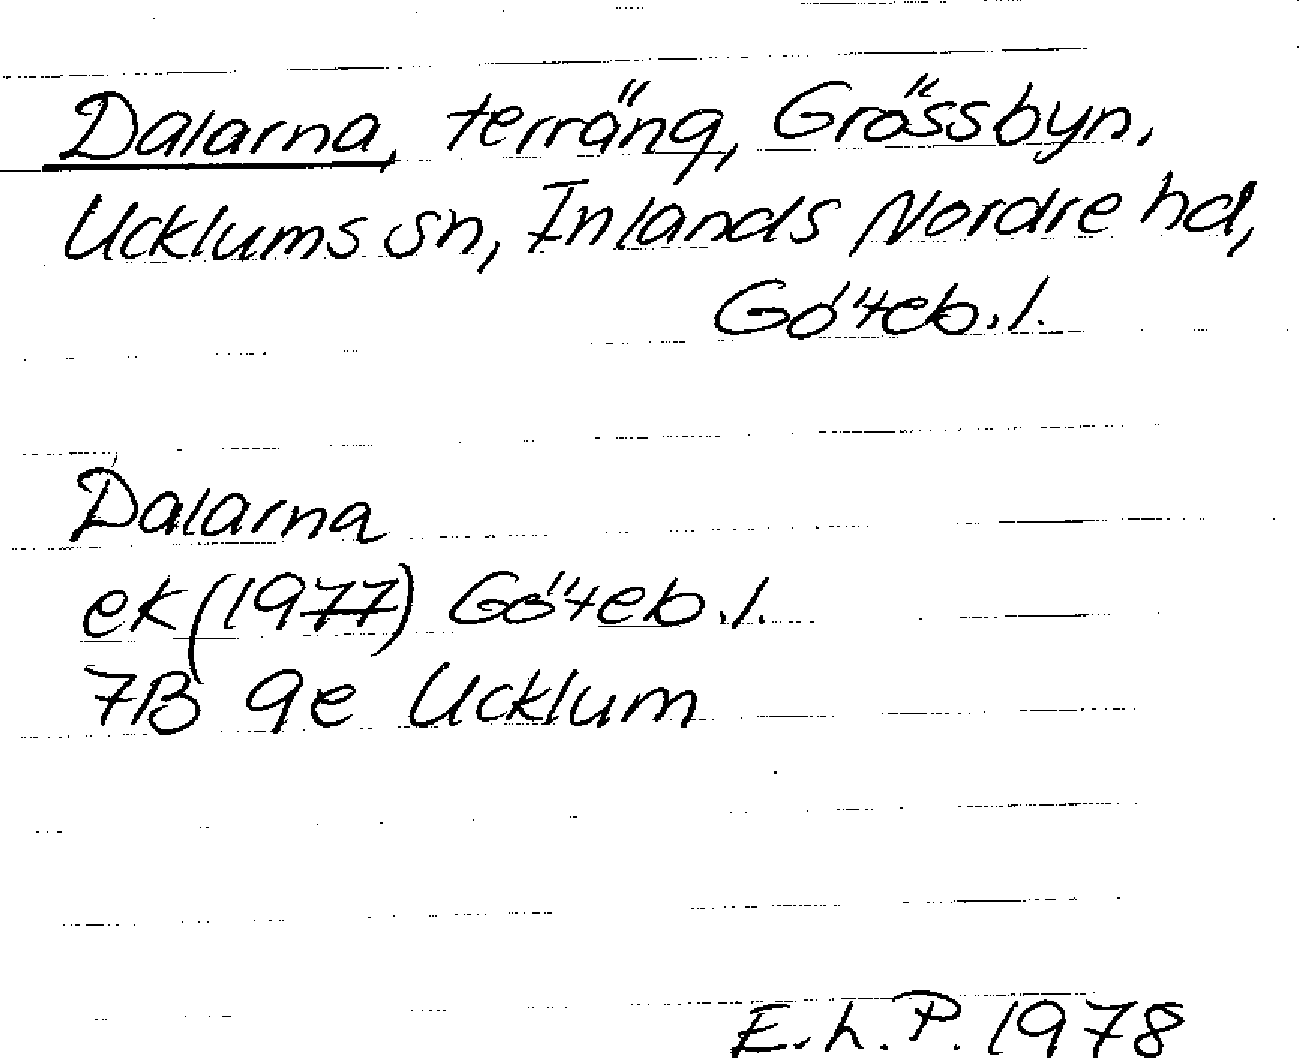 Dalarna, terräng, Grössbyn,
Ucklums sn, Inlands Nordre hd,
Göteb.l.
Dalarna
ek (1977) Göteb.l.
7B 9e Ucklum
E.h.P. 1978